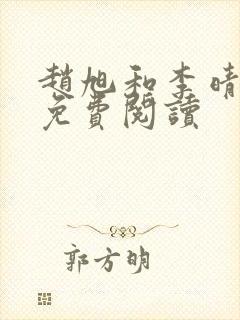 趙旭和李晴
免費閱讀
郭方明